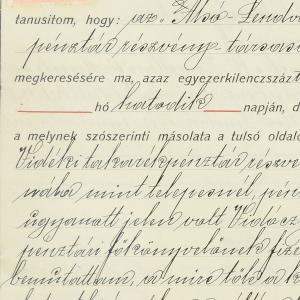 tanusitom, hogy: az „Alsó-Lendva
pénztár részvény-társasá
megkeresésére ma, azaz egyezerkilenczszázt
hó hatodik napján, d
a melynek szószerinti másolata a tulsó oldalo
Vidéki takarékpénztár részvé
mint telepesnél, pén
ugyanott jelen volt Vidócz
pénztári főkönyvelőnek fize
bemutattam, a mire tőle a k